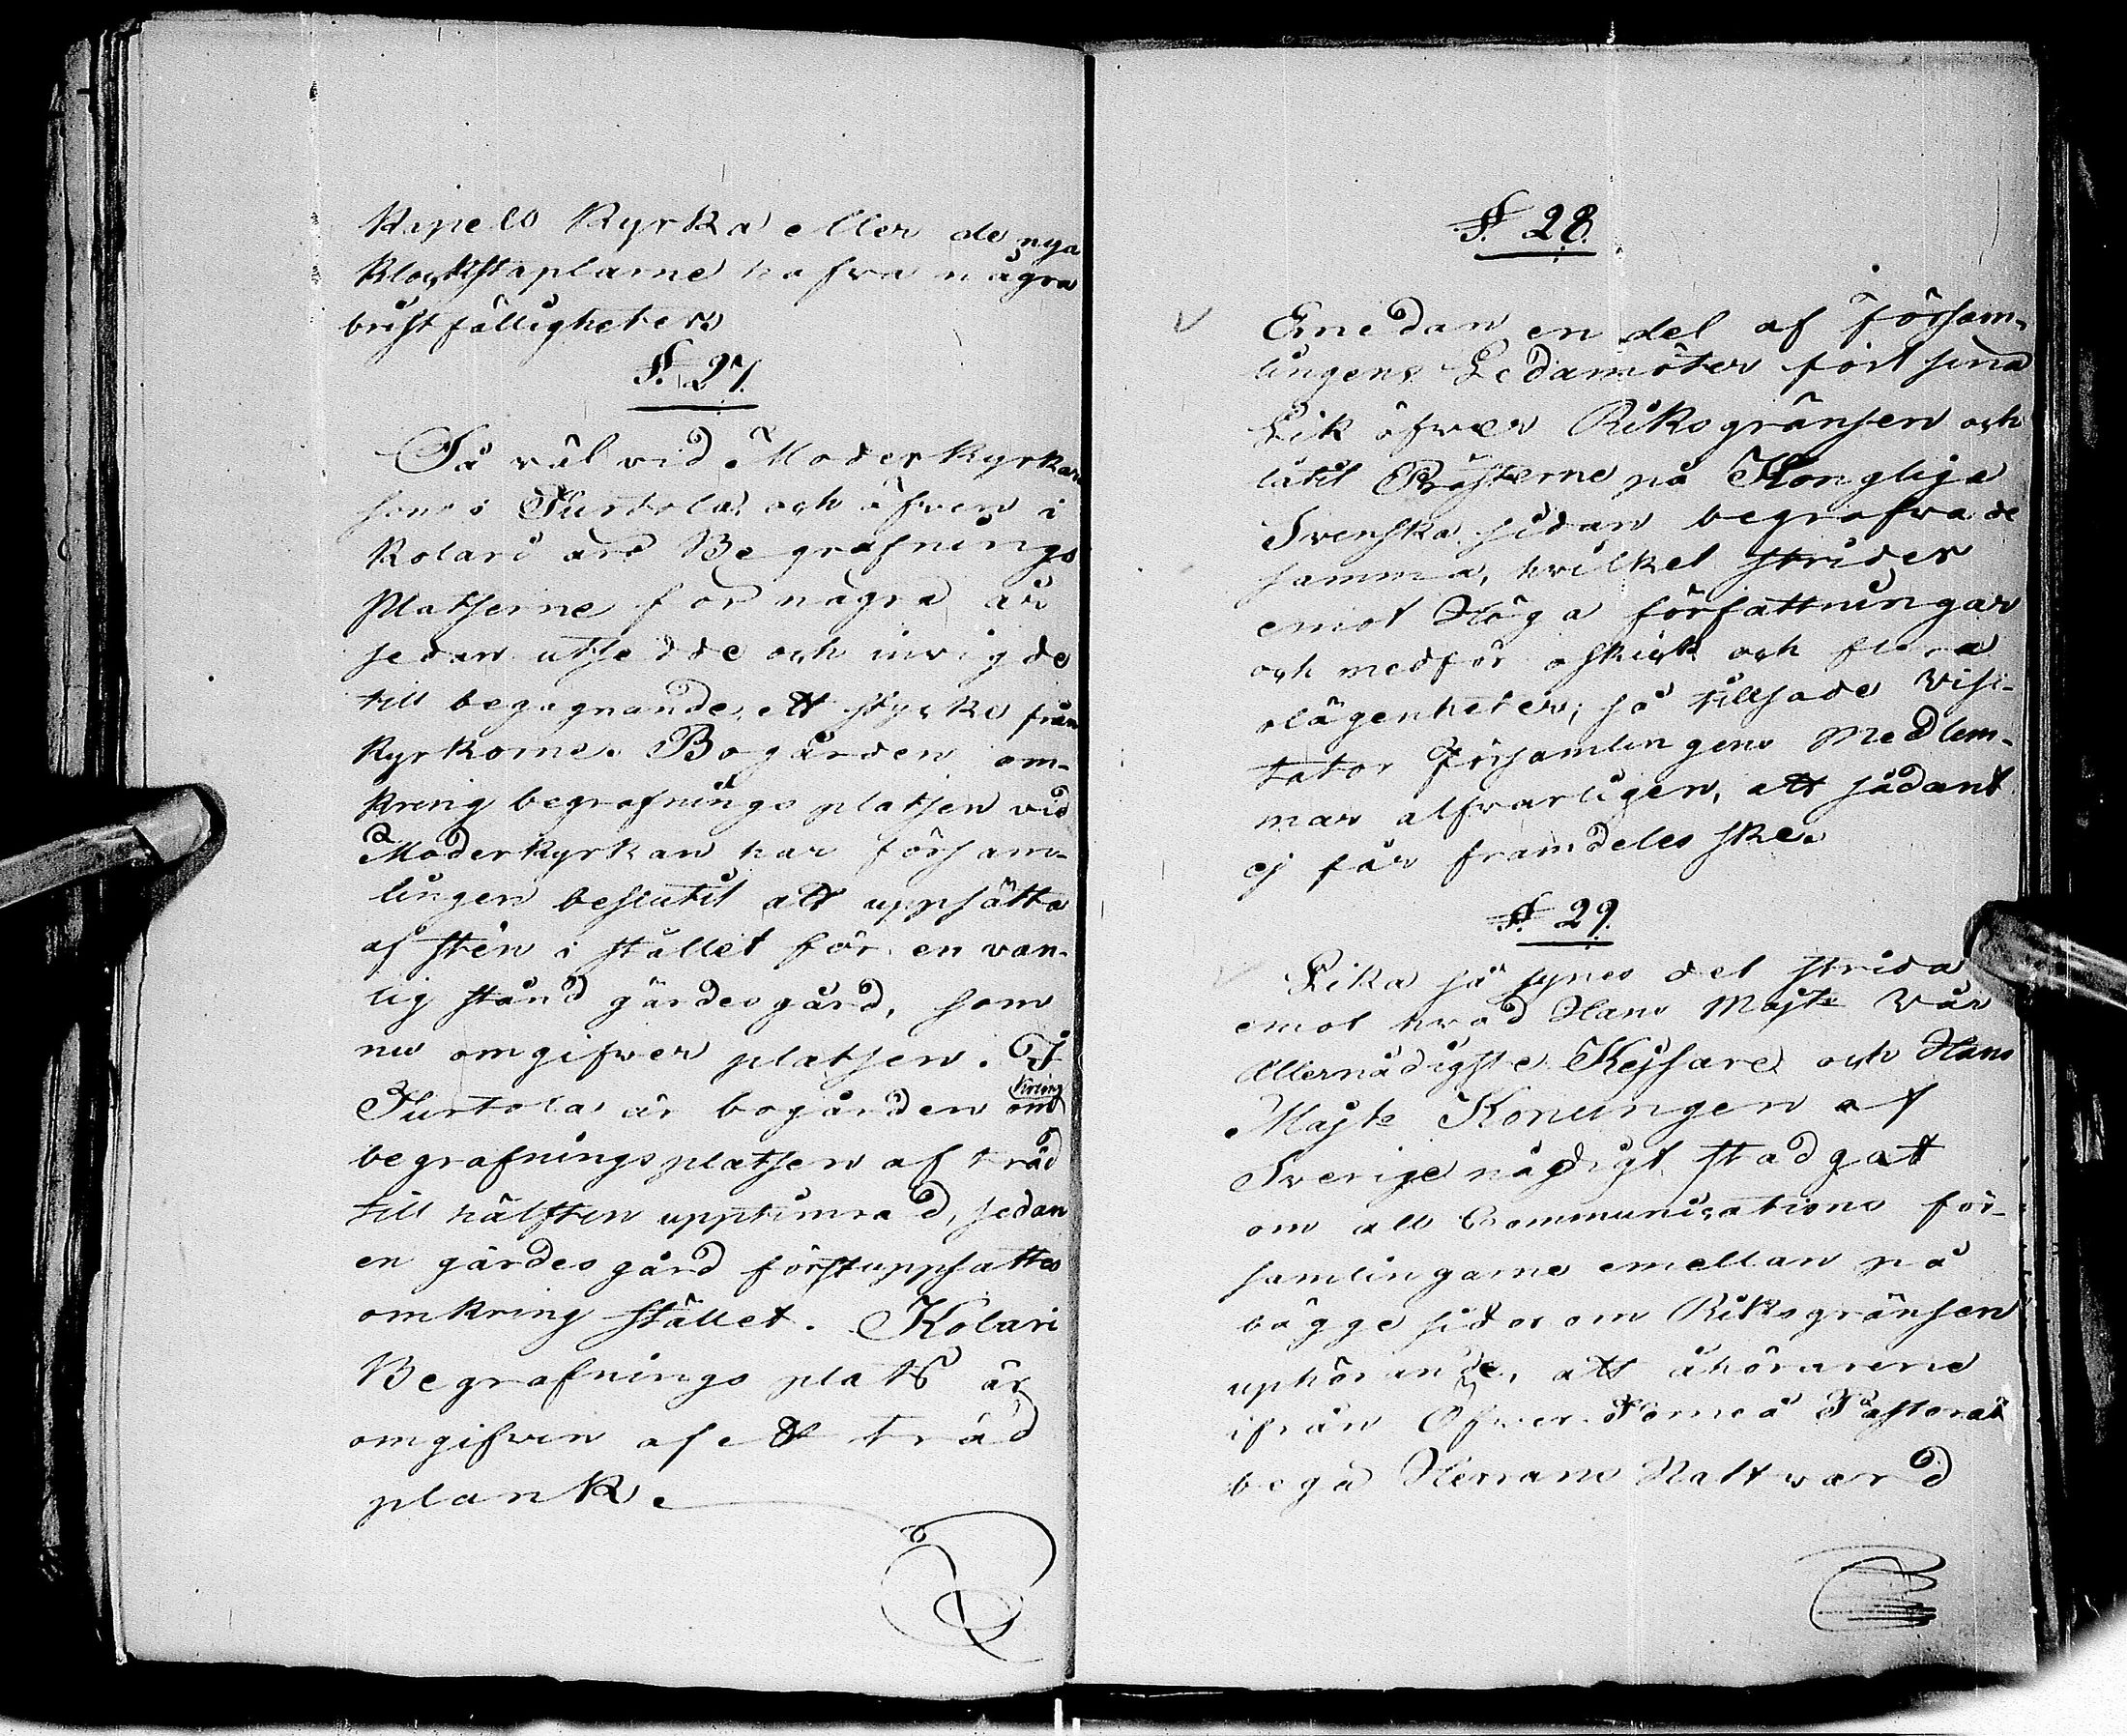 Kapels Kyrka eller de nya
Klockstaplarne hafva några
bristfälligheter.
§. 27.
Så väl vid Moderkyrkan
som i Turtola, och äfven i
Kolari äro Begrafnings
Platserne för några år
sedan utsedde och invigde
till begagnande, ett stycke från
Kyrkorne. Bogården om-
kring begrafnings platsen vid
Moderkyrkan har försam-
lingen beslutit att uppsätta
af sten i stället för en van-
lig stånd gärdesgård, som
nu omgifver platsen. I
Turtola är bogården omkring
begrafningsplatsen af träd
till hälften upptimrad, sedan
en gärdesgård först uppsattes
omkring stället. Kolari
Begrafnings plats är
omgifven af ett träd
plank.
§. 28.
Emedan en del af Försam-
lingens Ledamöter fört sina
Lik öfver Riksgränsen och
låtit Prästerne på Kongliga
Svenska sidan begrafva de
samma, hvilket strider
emot Höga författningar
och medför oskick och flera
olägenheter; så tillsade Visi-
tator Församlingens Medlem-
mar alfvarligen, att sådant
ej får framdeles ske.
§. 29.
Lika så synes det strida
emot hvad Hans Majt Vår
Allernådigste Kejsare och Hans
Majt Konungen af
Sverige nådigt stadgat
om all Communications för-
samlingarne emellan på
bägge sidor om Riksgränsen
uphörande, att åhörarene
ifrån Öfver Torneå Pastorat
begå Herrans Nattvard